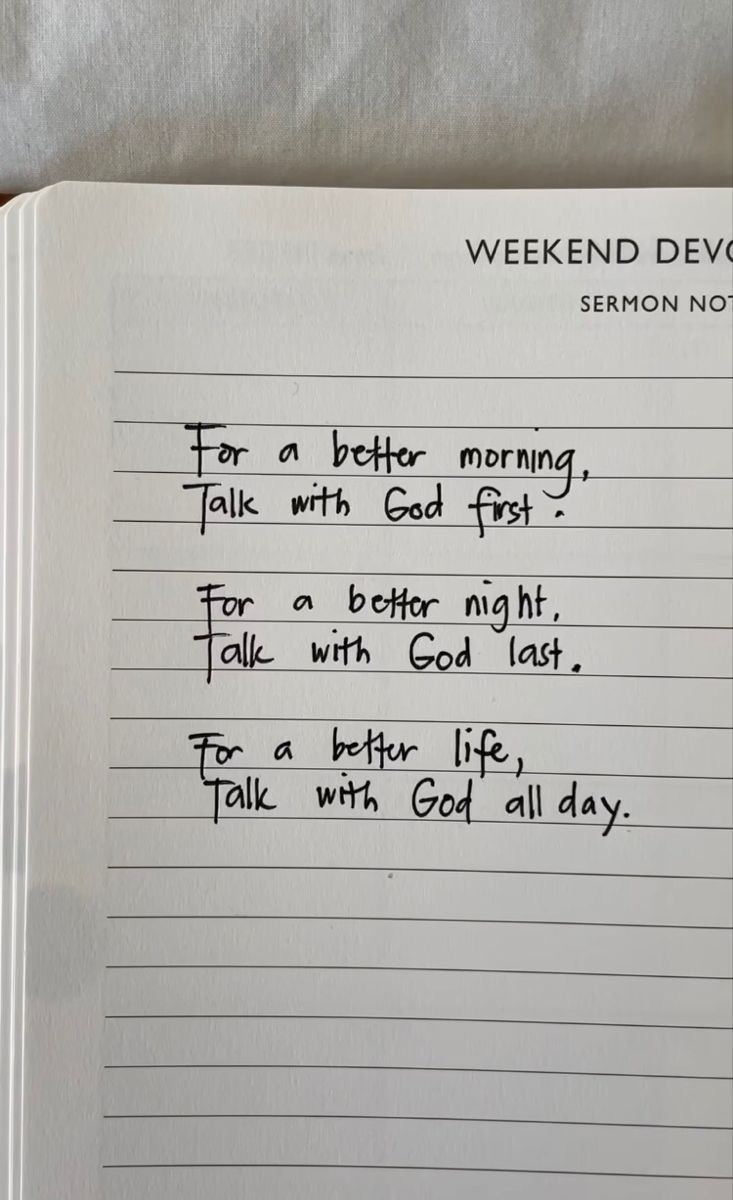 WEEKEND DEVO
SERMON NOT
For a better morning,
Talk with God first.
For a better night,
Talk with God last.
For a better life,
Talk with God all day.